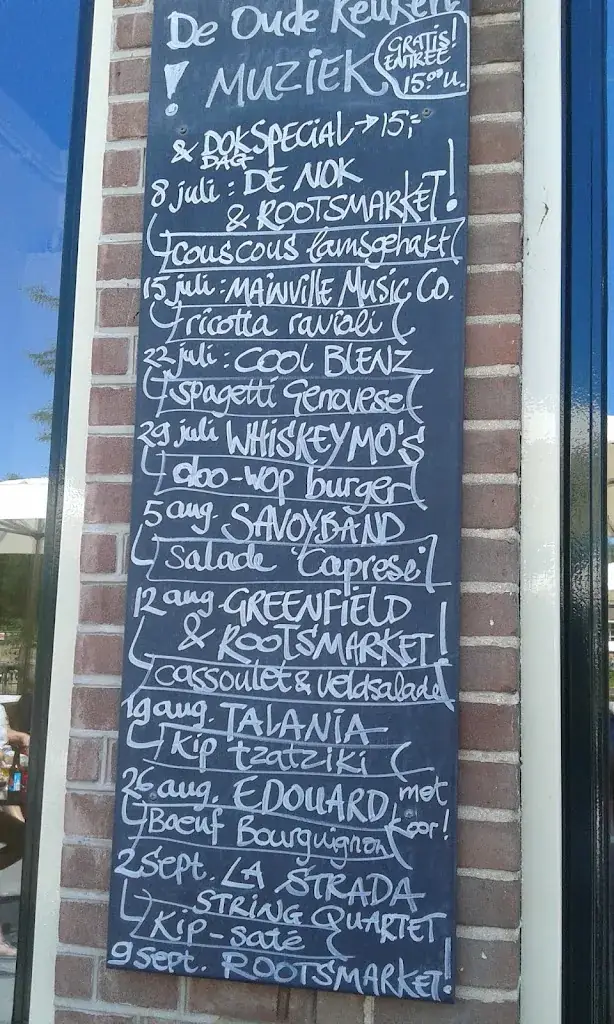 De Oude Keuken
! MUZIEK
GRATIS!
ENTREE
15.00 u.
& DOKSPECIAL → 15,-
DAG
8 juli : DE NOK
& ROOTSMARKET!
couscous lamsgehakt
15 juli : MAINVILLE MUSIC Co.
ricotta ravioli
22 juli : COOL BLENZ
spagetti Genovese
29 juli WHISKEYMO'S
doo-wop burger
5 aug. SAVOYBAND
Salade 'Caprese'
12 aug GREENFIELD
& ROOTSMARKET!
cassoulet & veldsalade
19 aug. TALANIA
Kip tzatziki
26 aug. EDOUARD met
koor!
Boeuf Bourguignon
2 Sept. LA STRADA
STRING QUARTET
Kip-saté
9 sept. ROOTSMARKET!